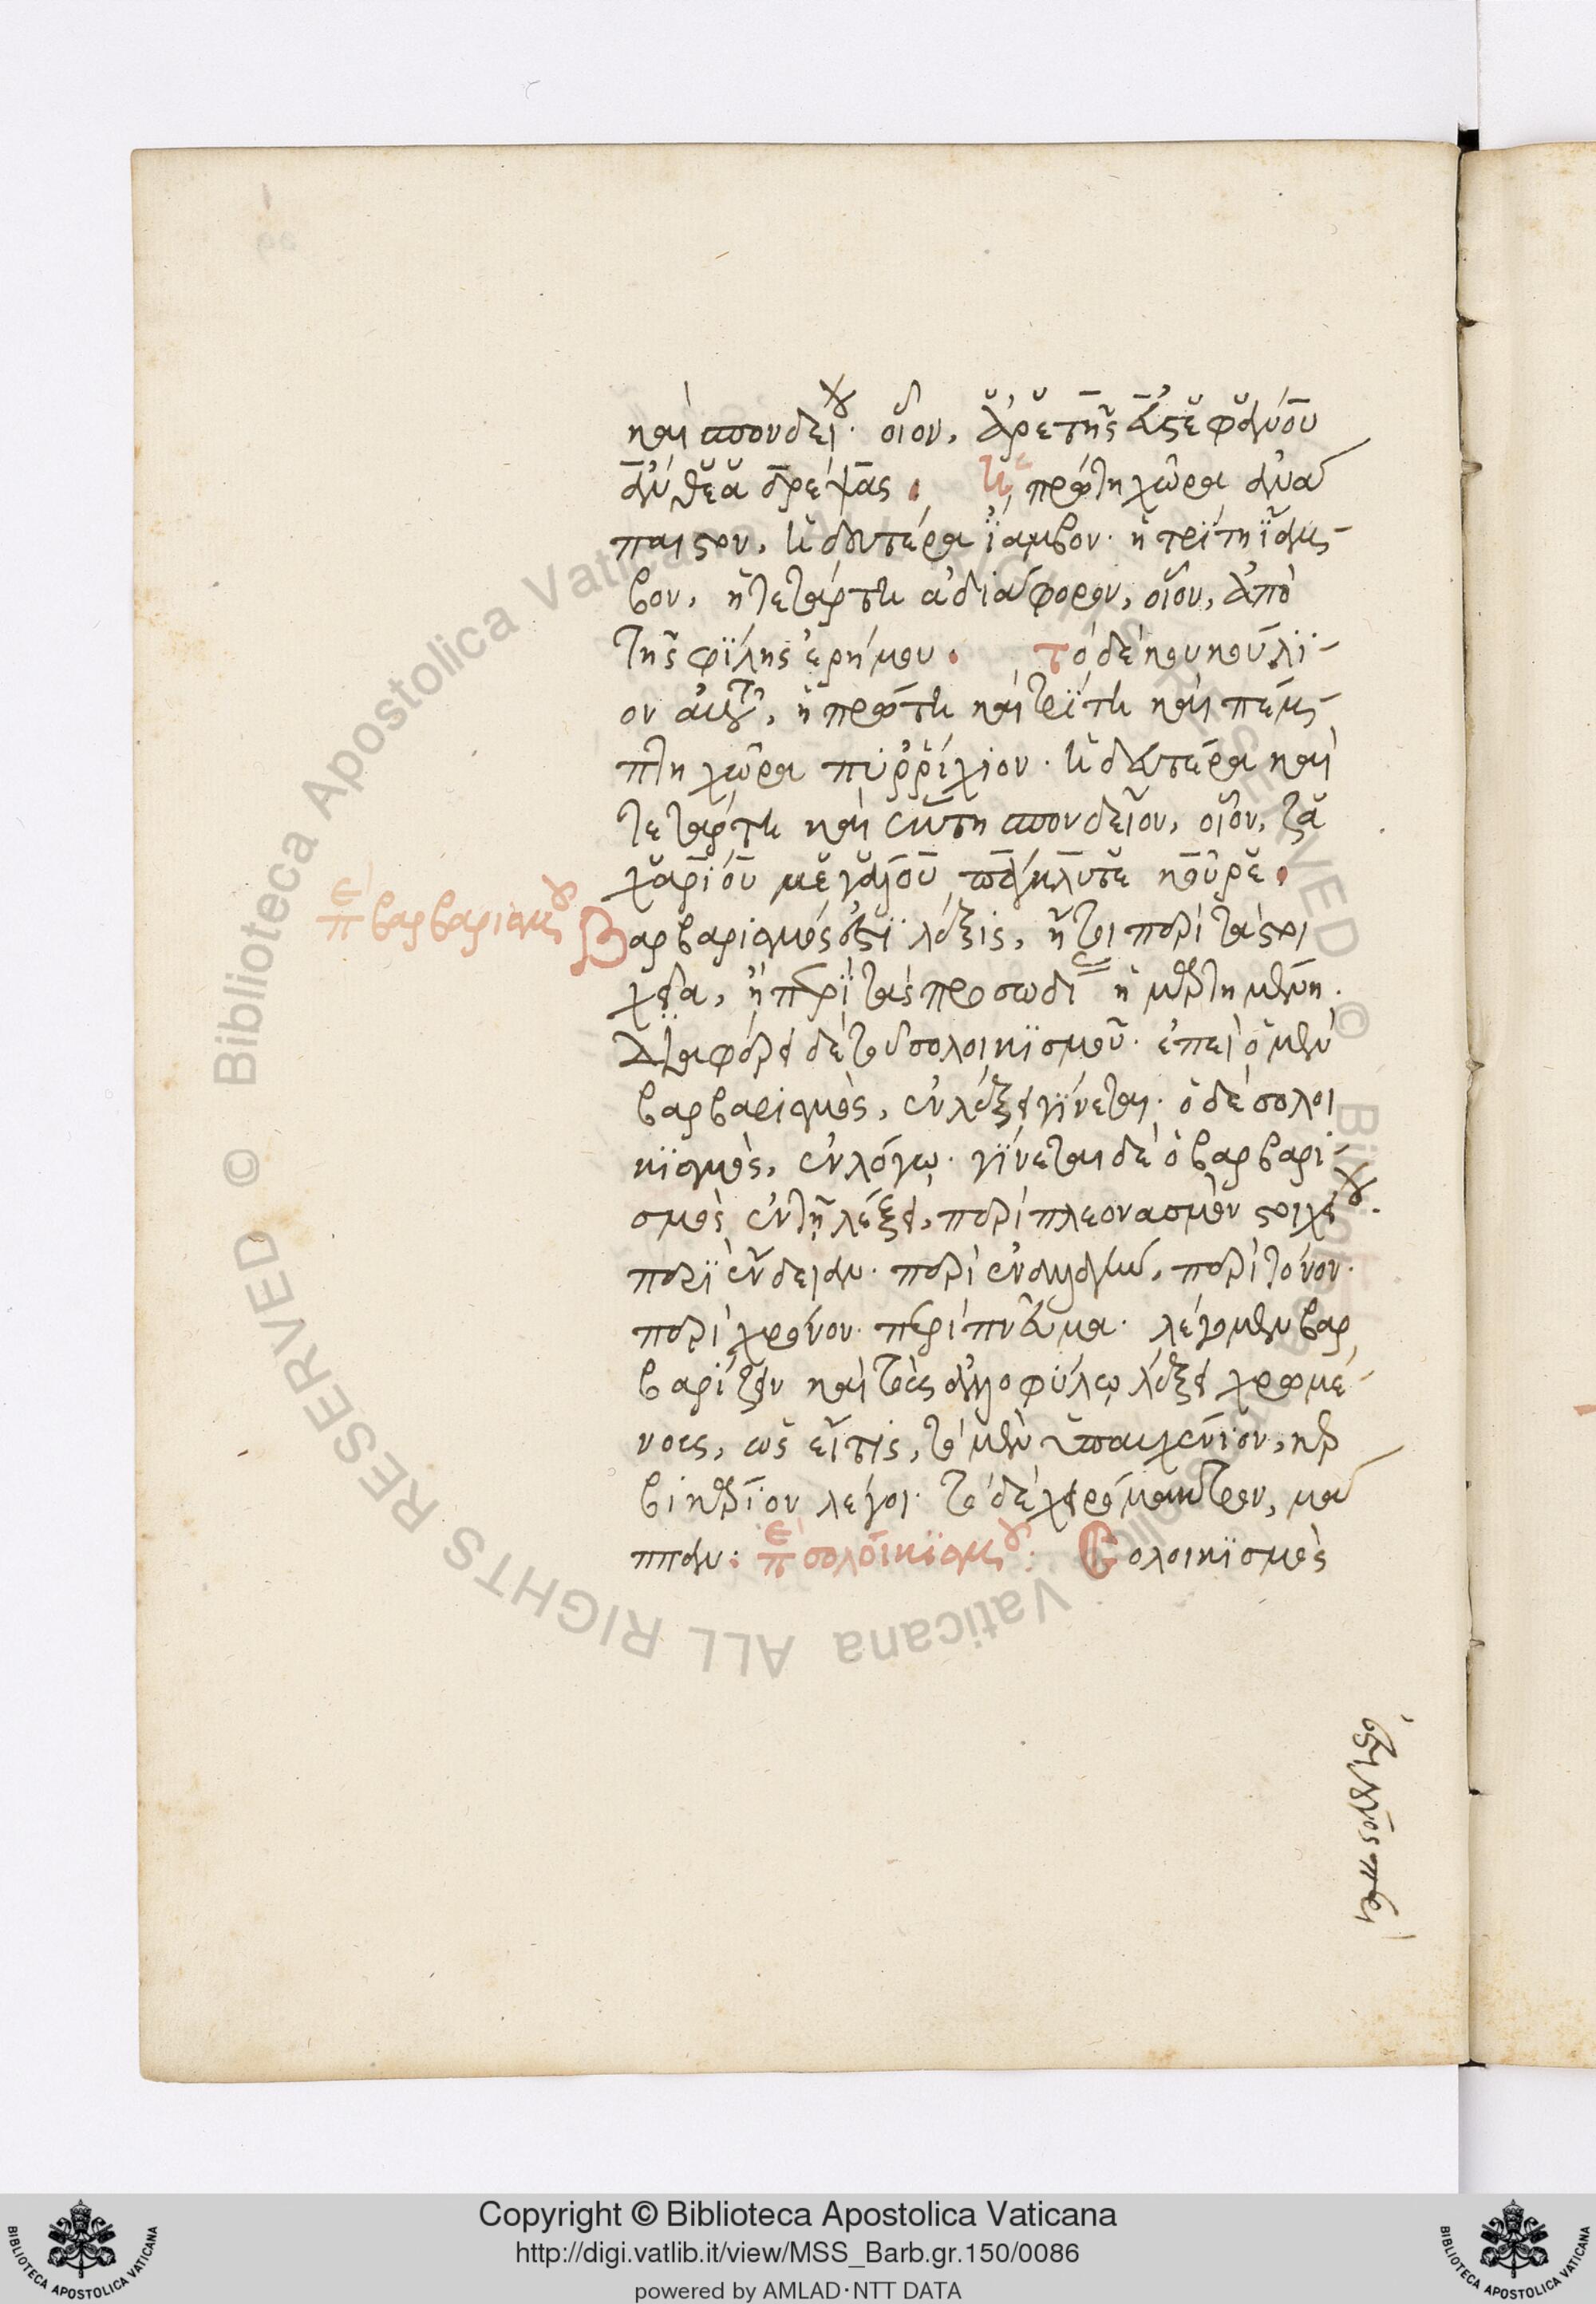 καὶ σπονδείου· οἷον, ἀρετῆς ἀεὶ
ἄνθεα δρέψας. ἡ πρώτη χώρα ἀνά
παιστον, ἡ δευτέρα ἴαμβον· ἡ τρίτη ἴαμ-
βον, ἡ τετάρτη ἀδιάφορον, οἷον, ἀπὸ
τῆς φίλης ἐρήμου. τὸ δὲ κουκούλι-
ον αὐτοῦ, ἡ πρώτη καὶ τρίτη καὶ πέμ-
πτη χώρα πυρρίχιον· ἡ δευτέρα καὶ
τετάρτη καὶ ἕκτη σπονδεῖον, οἷον, ζα
χαρίου μεγάλου πάγκλυτε κοῦρε.
περὶ βαρβαρισμοῦ
Βαρβαρισμός ἐστι λέξις, ἤτοι περὶ τὰ στοι
χεῖα, ἢ περὶ τὰς προσωδίας ἡμαρτημένη.
διαφέρει δὲ τοῦ σολοικισμοῦ· ἐπεὶ ὁ μὲν
βαρβαρισμὸς, ἐν λέξει γίνεται· ὁ δὲ σολοι
κισμὸς, ἐν λόγω· γίνεται δὲ ὁ βαρβαρι-
σμὸς ἐν τῆ λέξει, περὶ πλεονασμὸν στοιχείου.
περὶ ἔνδειαν· περὶ ἐναλλαγὴν, περὶ τόνον·
περὶ χρόνον· περὶ πνεῦμα· λέγομεν βαρ
βαρίζειν καὶ τοὺς ἀλλοφύλω λέξει χρωμέ-
νους, ὡς εἴ τις, τὸ μὲν ὑπαυχένιον, κερ
βικάριον λέγοι· τὸ δὲ χειρόμακτρον, μά
ππαν: περὶ σολοικισμοῦ: Σολοικισμὸς
Copyright © Biblioteca Apostolica Vaticana
http://digi.vatlib.it/view/MSS_Barb.gr.150/0086
powered by AMLAD·NTT DATA
BIBLIOTECA APOSTOLICA VATICANA
BIBLIOTECA APOSTOLICA VATICANA
© Biblioteca Apostolica Vaticana ALL RIGHTS RESERVED © Biblioteca Apostolica Vaticana ALL RIGHTS RESERVED